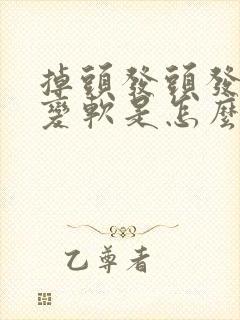 掉頭發頭發
變軟是怎麼
乙尊者